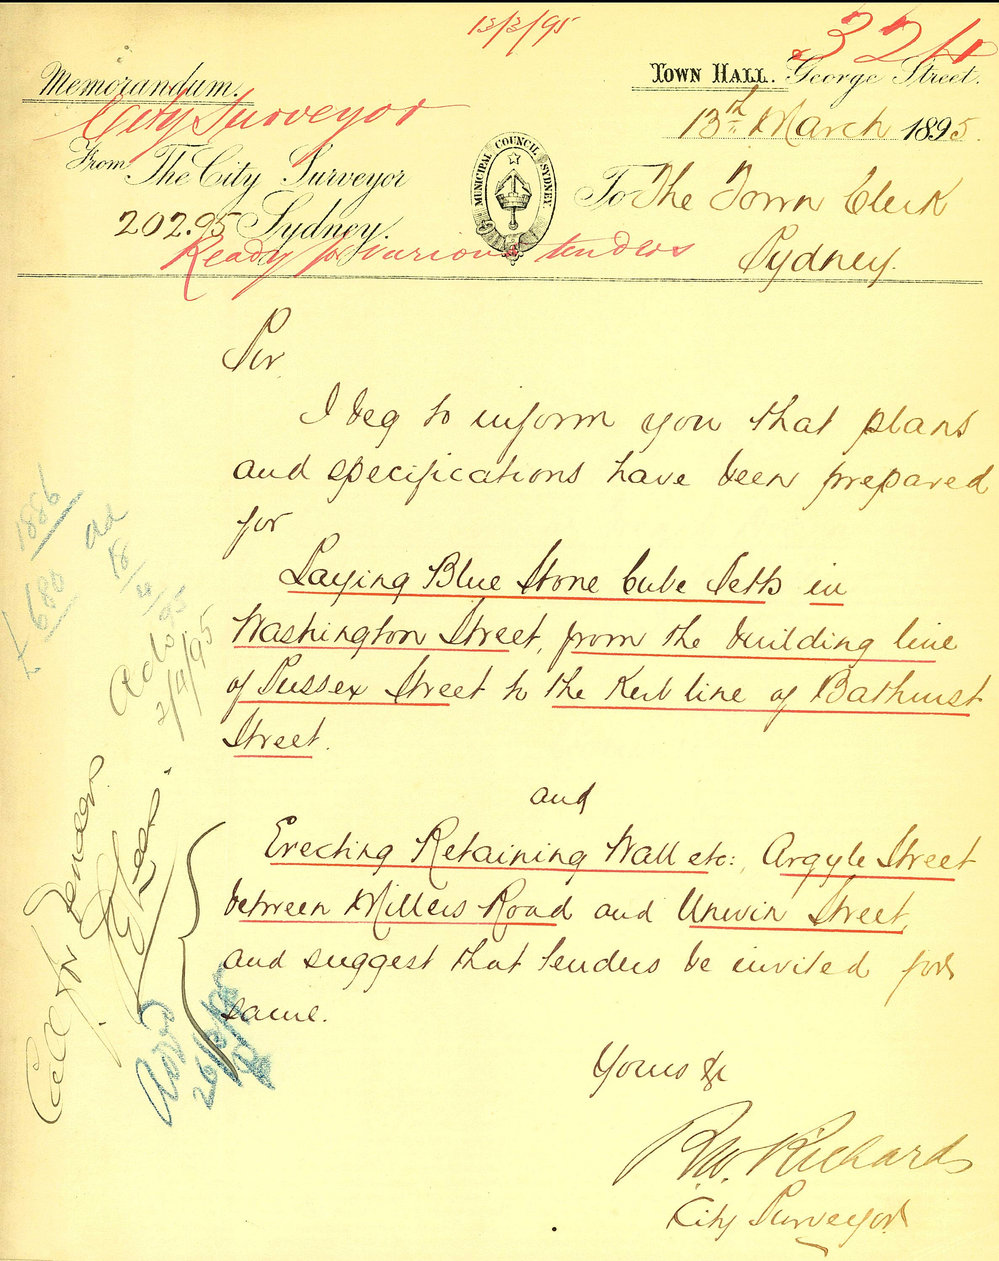 13/3/95
324
Memorandum.
Town Hall. George Street.
City Surveyor
13th March 1895.
From The City Surveyor
MUNICIPAL COUNCIL SYDNEY
To The Town Clerk
202.95 Sydney.
Ready for various tenders
Sydney.
Sir
I beg to inform you that plans
and specifications have been prepared
for
Laying Blue Stone Cube Setts in
Washington Street, from the building line
of Sussex Street to the Kerb line of Bathurst
Street.
and
Erecting Retaining Wall etc:, Argyle Street
between Millers Road and Unwin Street,
and suggest that tenders be invited for
same.
Yours &c
R.W. Richards
City Surveyor
1886
£680
ad
18/4/95
2/4/95
Call for Tenders.